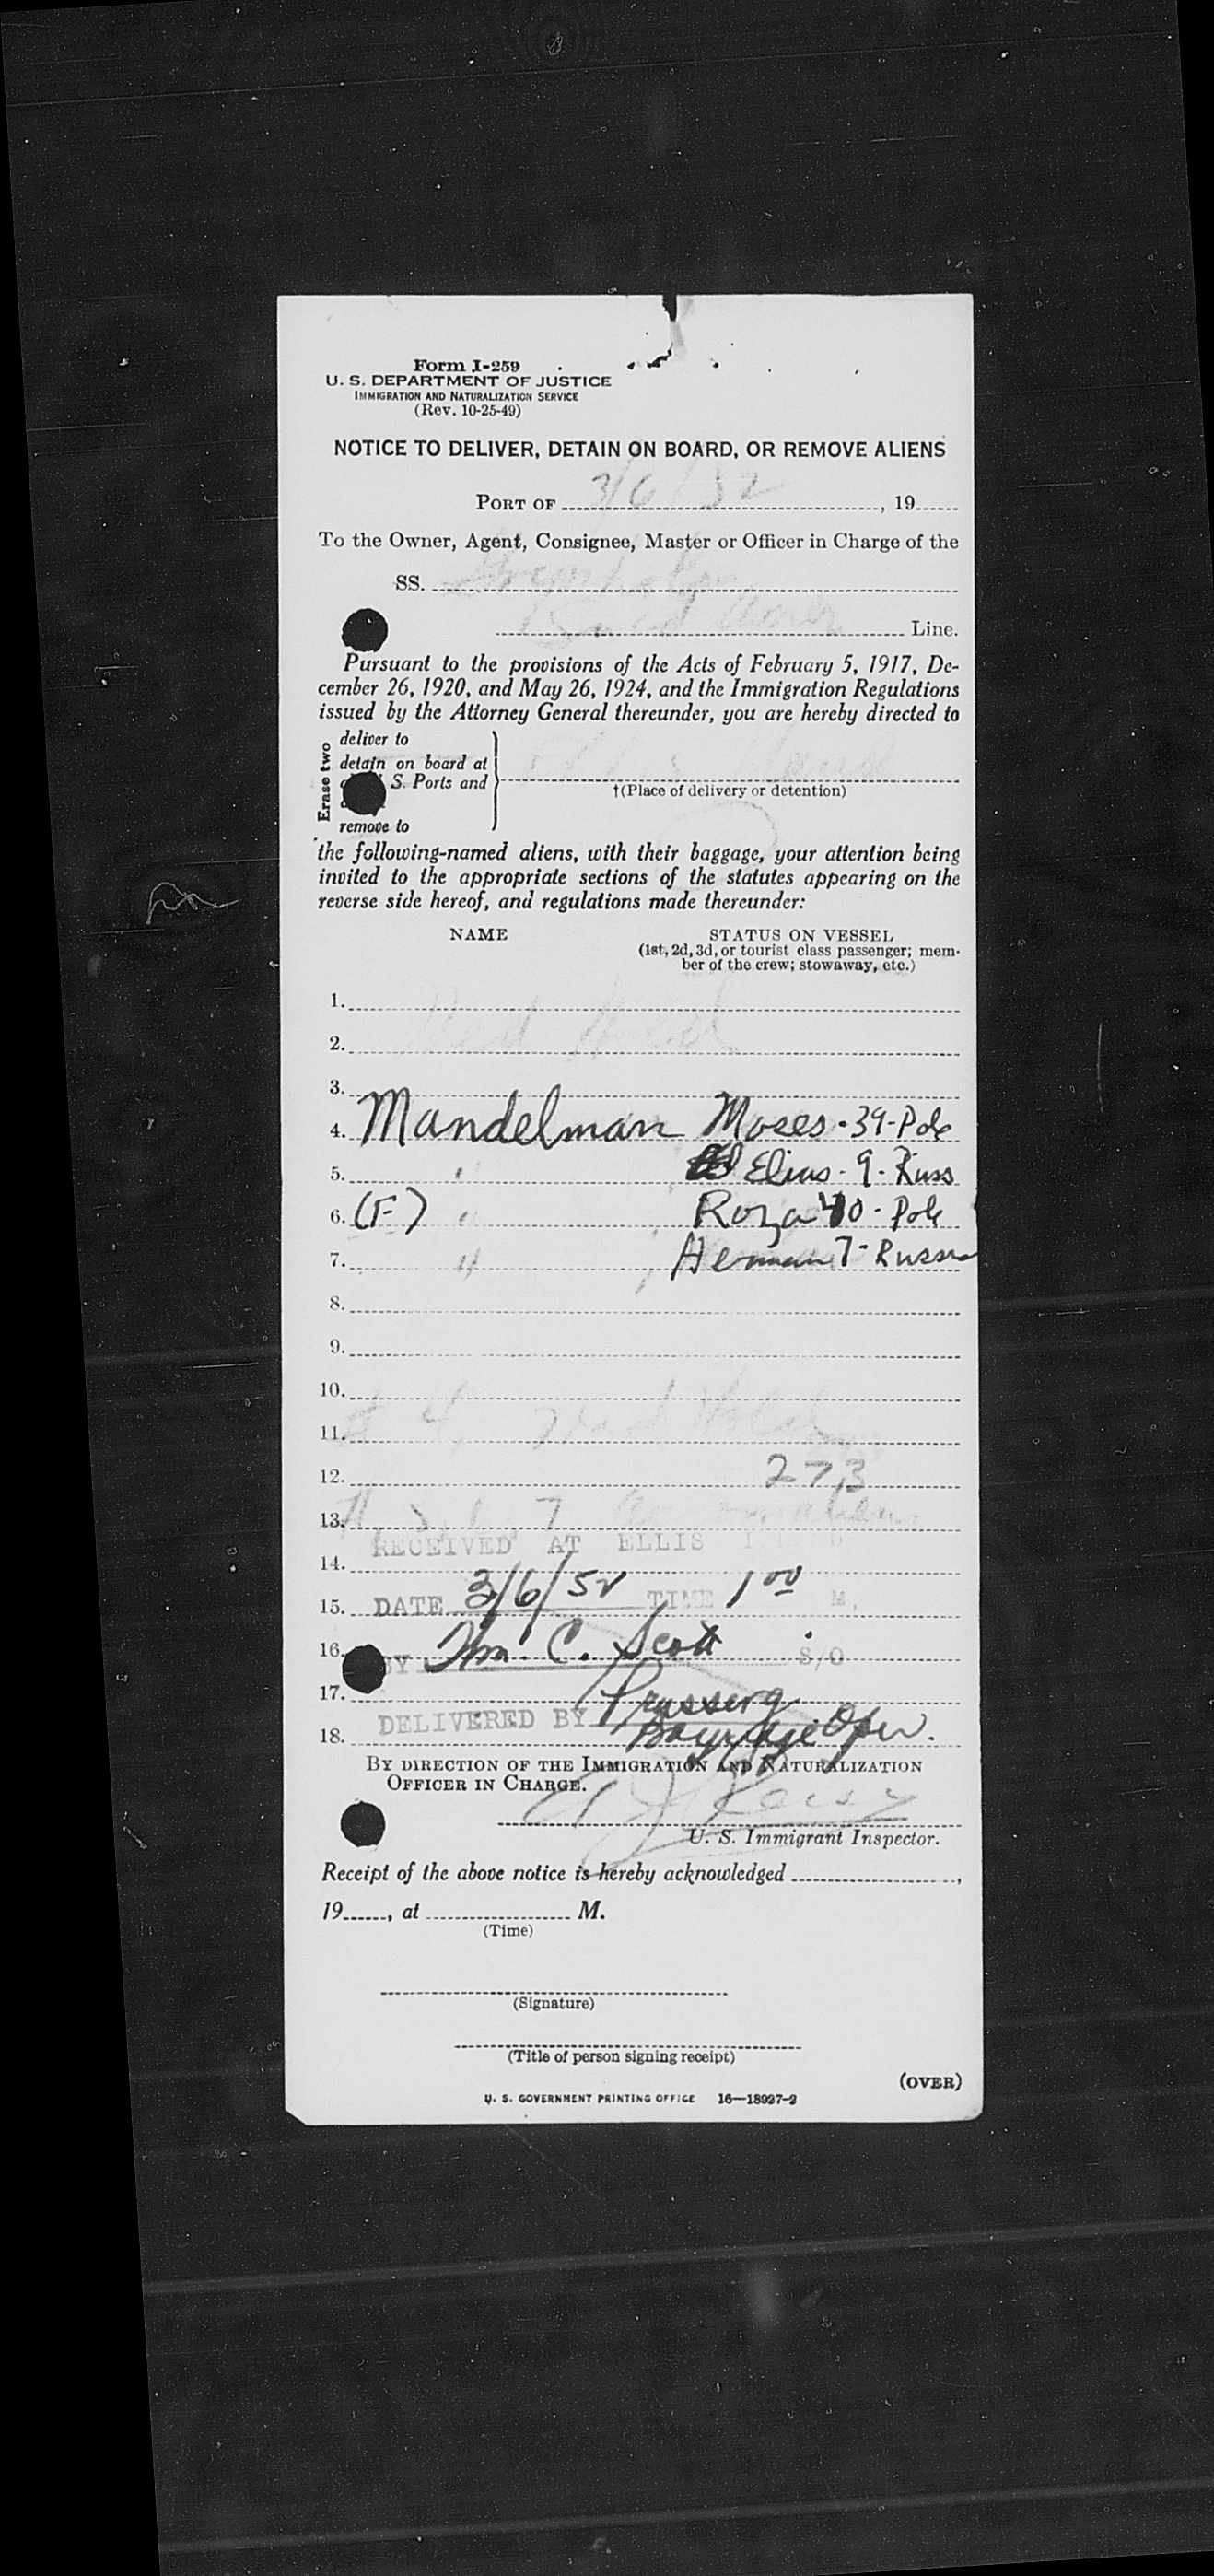 Form I-259
U. S. DEPARTMENT OF JUSTICE
IMMIGRATION AND NATURALIZATION SERVICE
(Rev. 10-25-49)
NOTICE TO DELIVER, DETAIN ON BOARD, OR REMOVE ALIENS
PORT OF 3/6/52, 19
To the Owner, Agent, Consignee, Master or Officer in Charge of the
SS.
Line.
Pursuant to the provisions of the Acts of February 5, 1917, De-
cember 26, 1920, and May 26, 1924, and the Immigration Regulations
issued by the Attorney General thereunder, you are hereby directed to
Erase two
deliver to
detain on board at
S. Ports and
remove to
†(Place of delivery or detention)
the following-named aliens, with their baggage, your attention being
invited to the appropriate sections of the statutes appearing on the
reverse side hereof, and regulations made thereunder:
NAME STATUS ON VESSEL
(1st, 2d, 3d, or tourist class passenger; mem-
ber of the crew; stowaway, etc.)
1.
2.
3.
4. Mandelman Moses - 39 - Pole
5. " Elias - 9 - Russ
6. (F) " Roza 40 - Pole
7. " Herman 7 - Russia
8.
9.
10.
11.
12. 273
13.
RECEIVED AT ELLIS
14.
15. DATE 3/6/52 TIME 1 00 M.
16. BY Wm. C. Scott S/O
17.
18. DELIVERED BY
BY DIRECTION OF THE IMMIGRATION AND NATURALIZATION
OFFICER IN CHARGE.
U. S. Immigrant Inspector.
Receipt of the above notice is hereby acknowledged ,
19 , at M.
(Time)
(Signature)
(Title of person signing receipt)
(OVER)
U. S. GOVERNMENT PRINTING OFFICE 16—18927-2